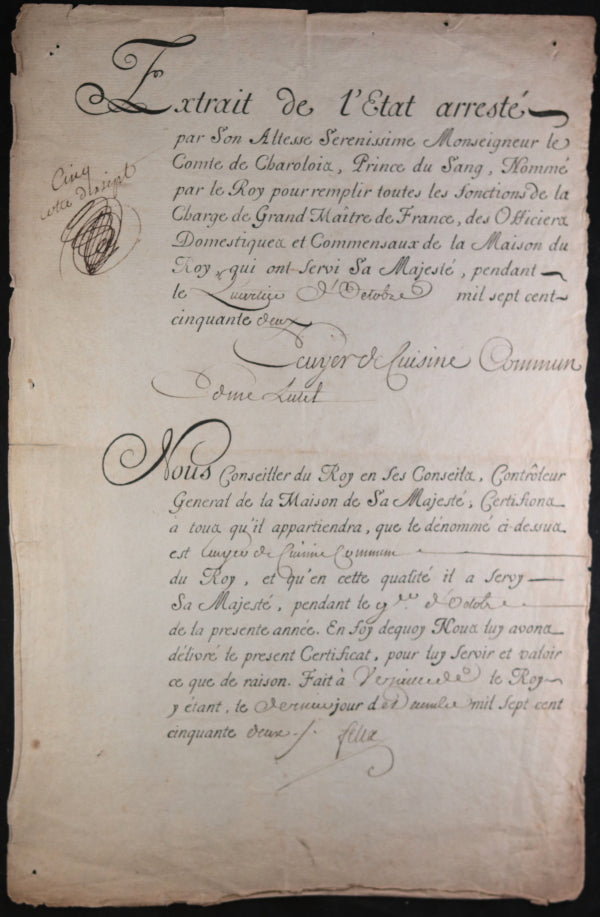 Extrait de l'Etat arresté
par Son Altesse Serenissime Monseigneur le
Comte de Charolois, Prince du Sang, Nommé
par le Roy pour remplir toutes les fonctions de la
Charge de Grand Maître de France, des Officiers
Domestiques et Commensaux de la Maison du
Roy, qui ont servi Sa Majesté, pendant
le Quartier d'Octobre mil sept cent
cinquante deux
Ecuyer de Cuisine Commun
Cinq
Nous Conseiller du Roy en ses Conseils, Contrôleur
General de la Maison de Sa Majesté, Certifions
a tous qu'il appartiendra, que le dénommé ci-dessus
est Ecuyer de Cuisine Commun
du Roy, et qu'en cette qualité il a servy
Sa Majesté, pendant le q.er d'Octobre
de la presente année. En foy dequoy Nous luy avons
délivré le present Certificat, pour luy servir et valoir
ce que de raison. Fait à le Roy
y étant, le dernier jour de Decembre mil sept cent
cinquante deux ./. felix